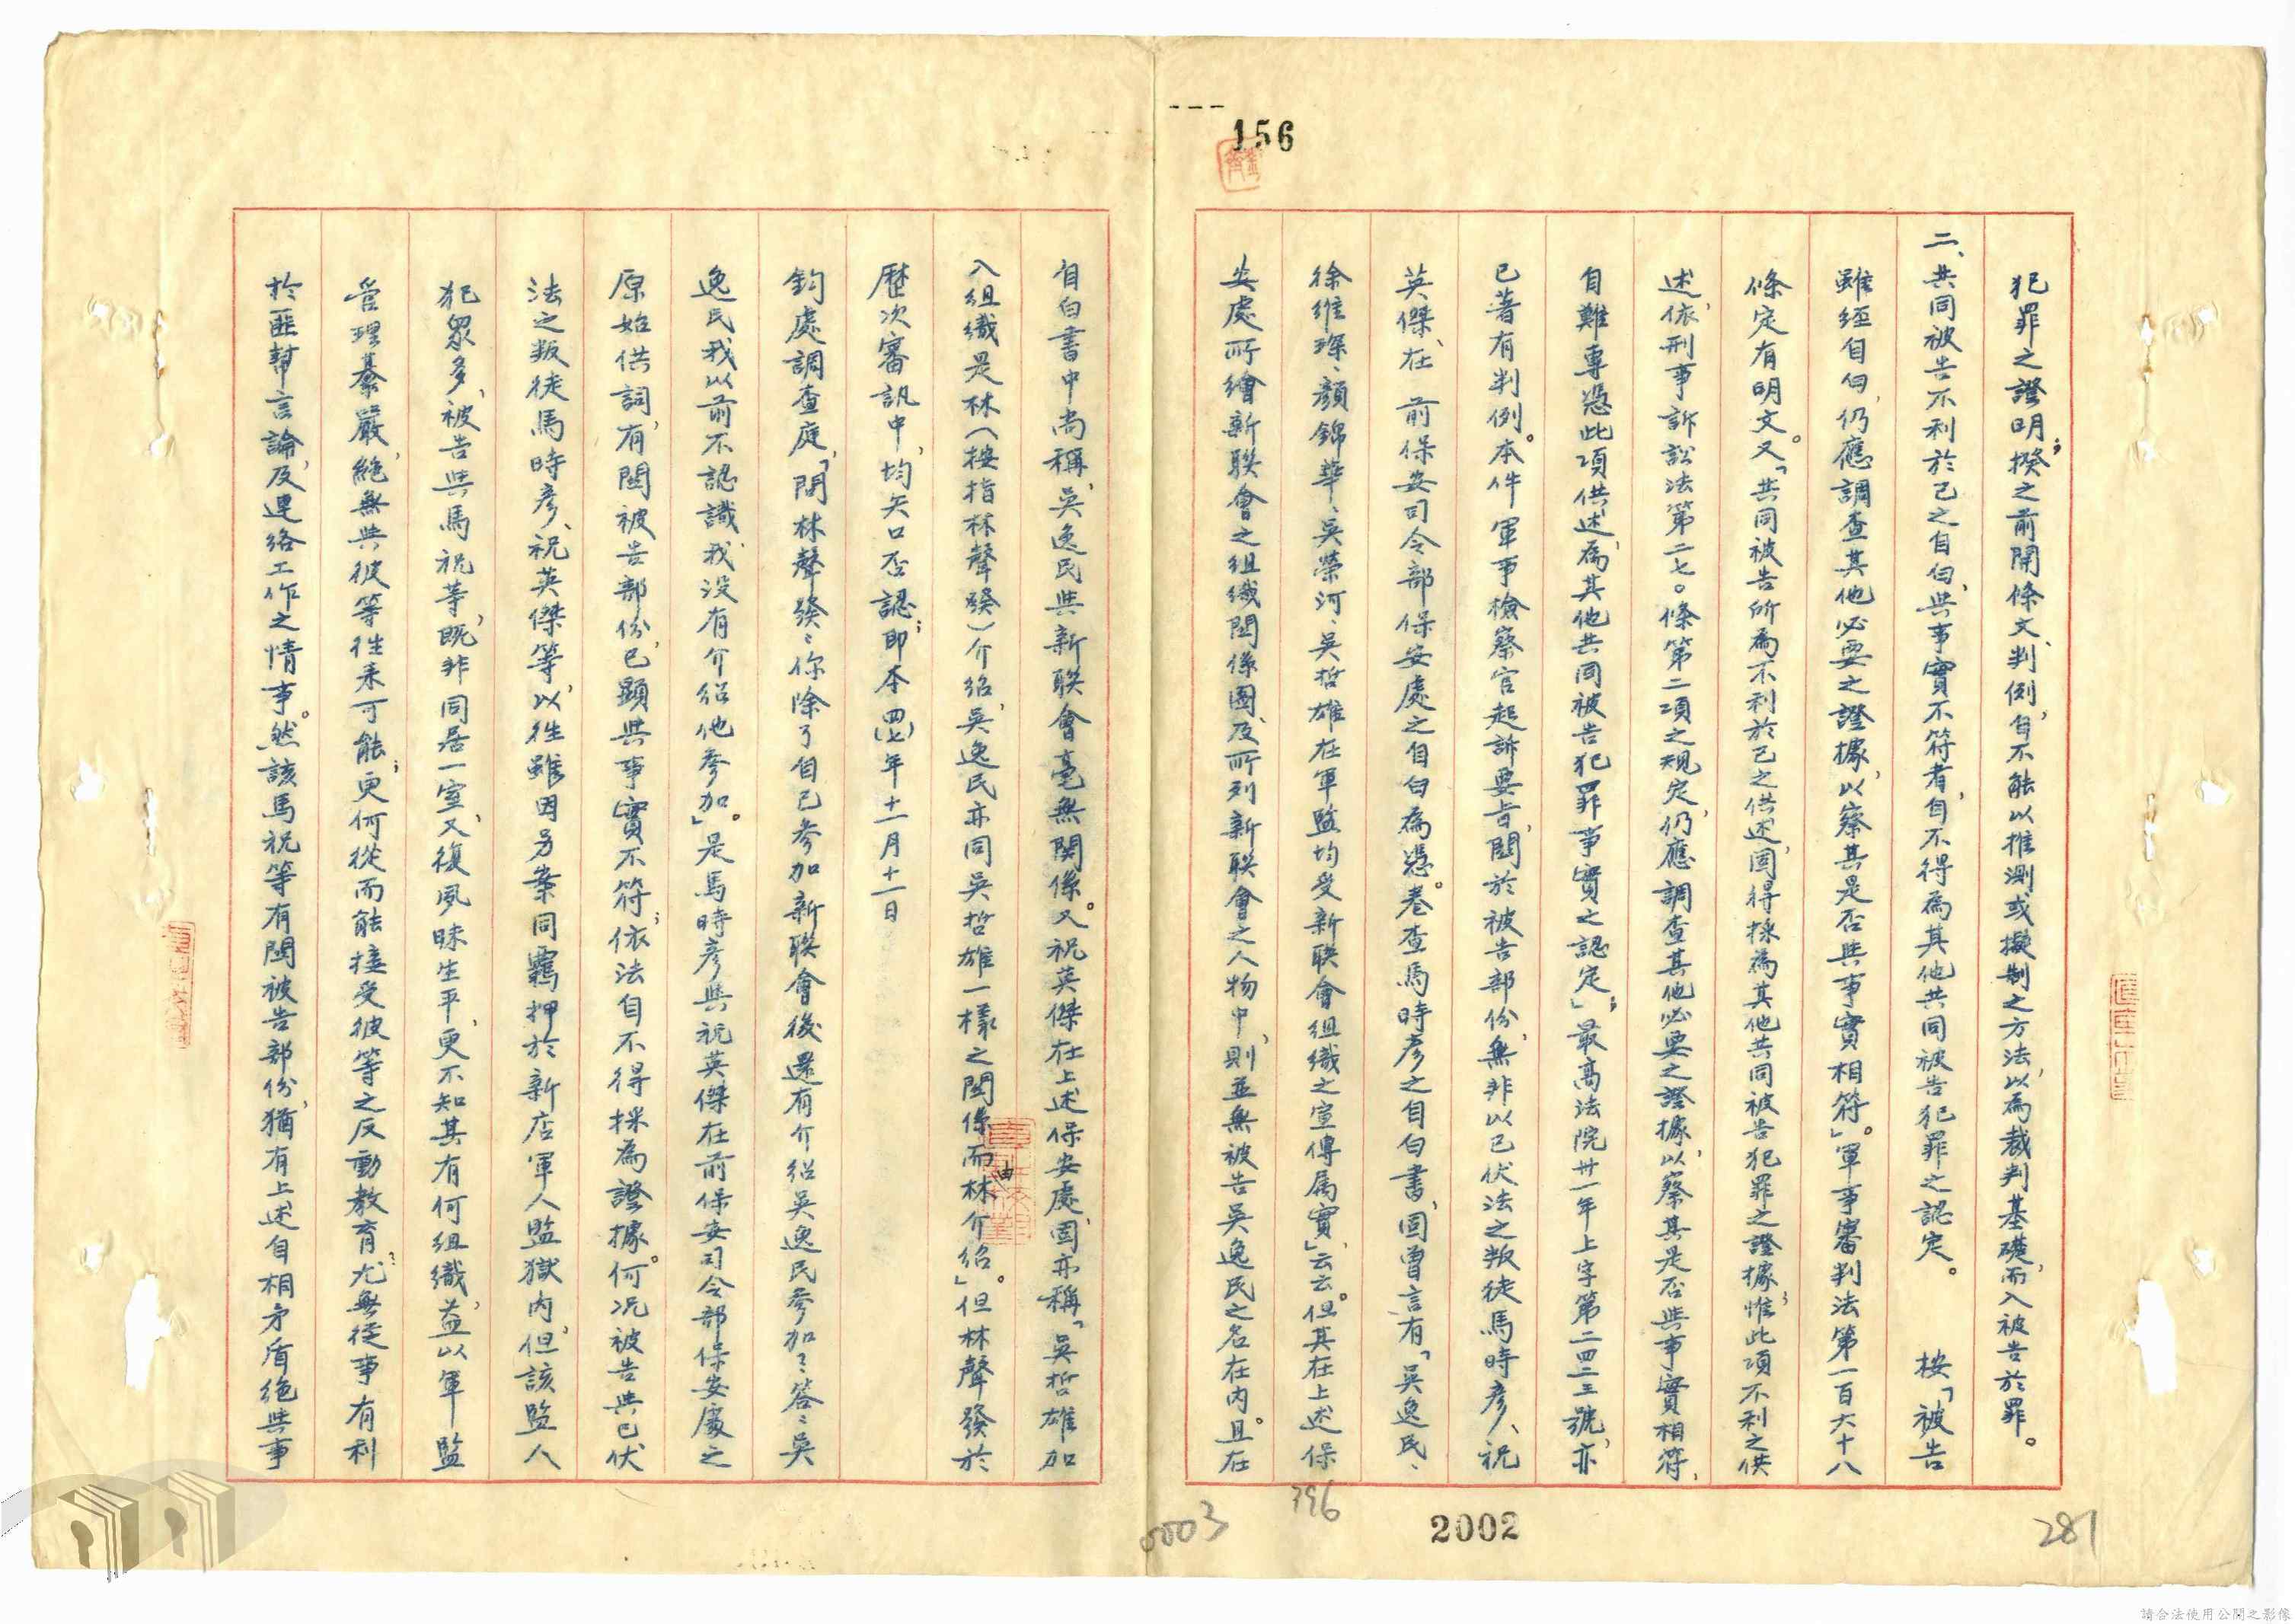 156
犯罪之證明；揆之前開條文、判例，自不能以推測或擬制之方法，以為裁判基礎，而入被告於罪。
二、共同被告不利於己之自白，與事實不符者，自不得為其他共同被告犯罪之認定。　按「被告
雖經自白，仍應調查其他必要之證據，以察其是否與事實相符」。軍事審判法第一百六十八
條定有明文。又「共同被告所為不利於己之供述，固得採為其他共同被告犯罪之證據，惟此項不利之供
述，依刑事訴訟法第二七〇條第二項之規定，仍應調查其他必要之證據，以察其是否與事實相符，
自難專憑此項供述，為其他共同被告犯罪事實之認定」；最高法院卅一年上字第二四二三號，亦
已著有判例。本件軍事檢察官起訴要旨，關於被告部份，無非以已伏法之叛徒馬時彥、祝
英傑，在前保安司令部保安處之自白為憑。卷查馬時彥之自白書，固曾言有「吳逸民、
徐維琛、顏錦華、吳榮河、吳哲雄在軍監均受新聯會組織之宣傳屬實」云云。但其在上述保
安處所繪新聯會之組織關係圖，及所列新聯會之人物中，則並無被告吳逸民之名在內。且在
自白書中尚稱，吳逸民與新聯會毫無關係。又祝英傑在上述保安處，固亦稱「吳哲雄加
入組織是林（按指林聲發）介紹，吳逸民亦同吳哲雄一樣之關係而由林介紹」。但林聲發於
歷次審訊中，均矢口否認；即本（四七）年十一月十一日
鈞處調查庭，「問林聲發：你除了自己參加新聯會後還有介紹吳逸民參加？答：吳
逸民我以前不認識，我沒有介紹他參加」。是馬時彥與祝英傑在前保安司令部保安處之
原始供詞，有關被告部份，已顯與事實不符；依法自不得採為證據。何況被告與已伏
法之叛徒馬時彥、祝英傑等，以往雖因另案同羈押於新店軍人監獄內，但該監人
犯眾多，被告與馬祝等，既非同居一室，又復夙昧生平，更不知其有何組織，益以軍監
管理綦嚴，絕無與彼等往來可能；更何從而能接受彼等之反動教育？尤無從事有利
於匪幫言論，及連絡工作之情事。然該馬祝等有關被告部份，猶有上述自相矛盾絕與事
0003
396
2002
281
請合法使用公開之影像